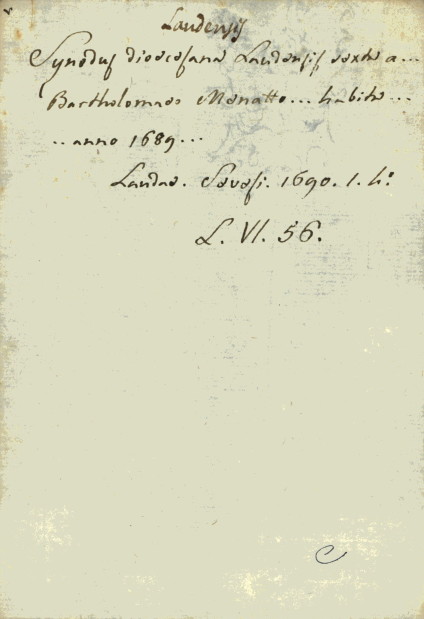 Laudensis
Synodus dioecesana Laudensis sexta a...
Bartholomaeo Menatto... habita...
... anno 1689...
Laudae. Sevesi. 1690. 1. 4.º
L. VI. 56.